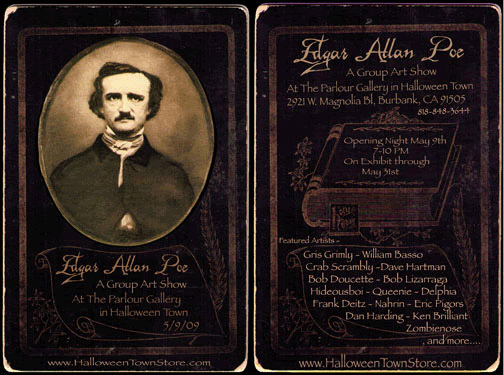 Edgar Allan Poe
A Group Art Show
At The Parlour Gallery
in Halloween Town
5/9/09
www.HalloweenTownStore.com
Edgar Allan Poe
A Group Art Show
At The Parlour Gallery in Halloween Town
2921 W. Magnolia Bl, Burbank, CA 91505
818-848-3644
Opening Night May 9th
7-10 PM
On Exhibit through
May 31st
Featured Artists -
Gris Grimly - William Basso
Crab Scrambly -Dave Hartman
Bob Doucette - Bob Lizarraga
Hideousboi - Queenie - Delphia
Frank Deitz - Nahrin - Eric Pigors
Dan Harding - Ken Brilliant
Zombienose
, and more....
www.HalloweenTownStore.com